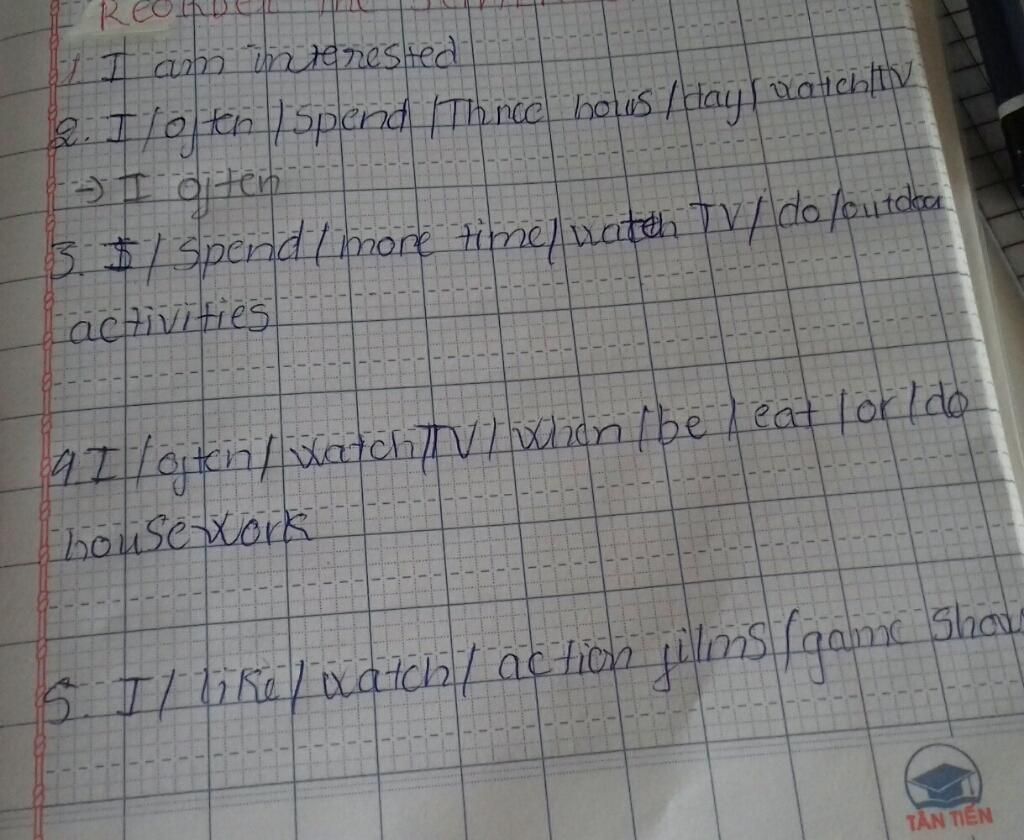 Reorder the
1, I am interested
2. I / often / spend / Three hours / day / watch / TV
→ I often
3. I / spend / more time / watch TV / do / outdoor
activities
4 I / often / watch TV / when / be / eat / or / do
housework
5. I / like / watch / action films / game show
TÂN TIẾN